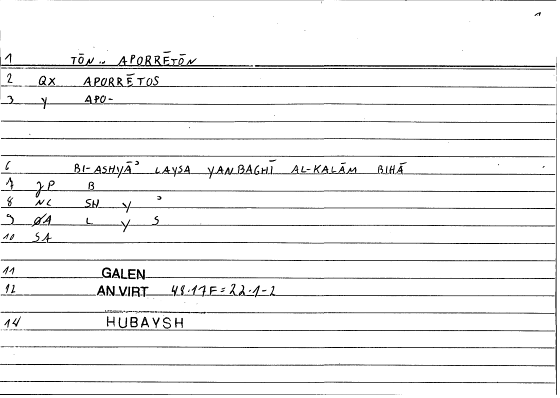 1 TŌN .. APORRĒTŌN
2 QX APORRĒTOS
3 y APO-
6 BI-ASHYĀʾ LAYSA YANBAGHĪ AL-KALĀM BIHĀ
7 JP B
8 NC SH y ʾ
9 ØA L y S
10 SA
11 GALEN
12 AN.VIRT 48.17F=22.1-2
14 HUBAYSH